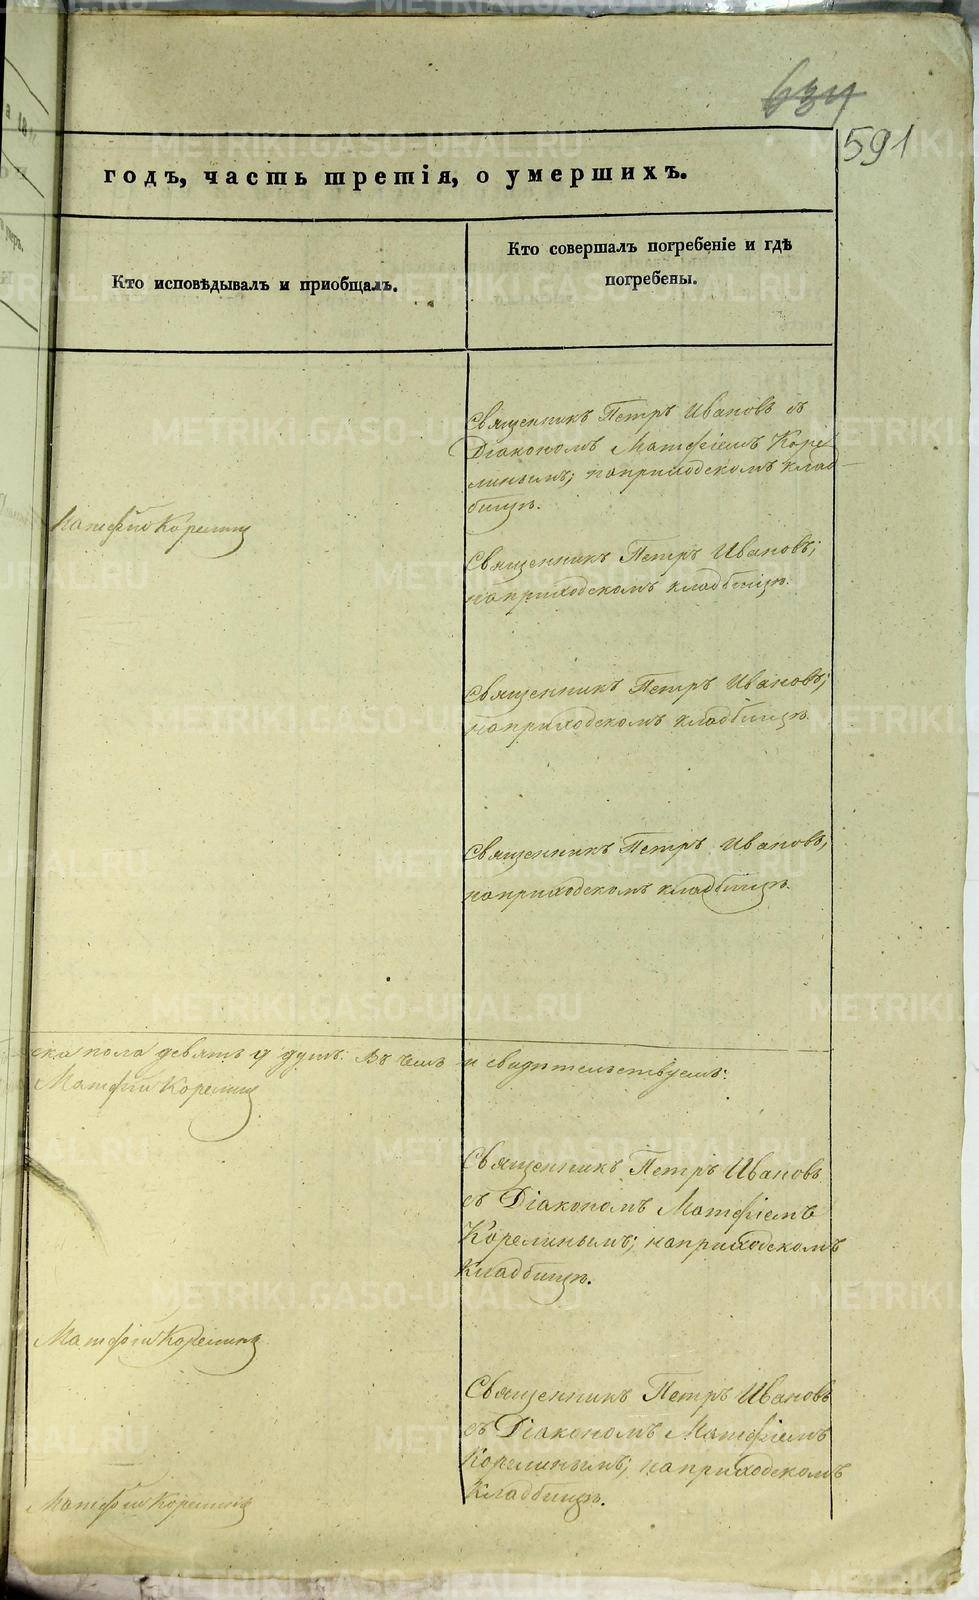 634
591
годъ, часть третія, о умершихъ.
Кто исповѣдывалъ и приобщалъ.
Кто совершалъ погребеніе и гдѣ
погребены.
Священникъ Петръ Ивановъ съ
Діакономъ Матфіемъ Коре
линымъ; на приходскомъ клад-
бищѣ.
Матфій Корелинъ
Священникъ Петръ Ивановъ;
на приходскомъ кладбищѣ.
Священникъ Петръ Ивановъ;
на приходскомъ кладбищѣ.
Священникъ Петръ Ивановъ;
на приходскомъ кладбищѣ.
ска пола девять 9 душъ. Въ чемъ и свидѣтельствуемъ:
Матфій Корелинъ
Священникъ Петръ Ивановъ
съ Діакономъ Матфіемъ
Корелинымъ; на приходскомъ
кладбищѣ.
Матфій Корелинъ
Священникъ Петръ Ивановъ
съ Діакономъ Матфіемъ
Корелинымъ; на приходскомъ
кладбищѣ.
Матфій Корелинъ
METRIKI.GASO-URAL.RU